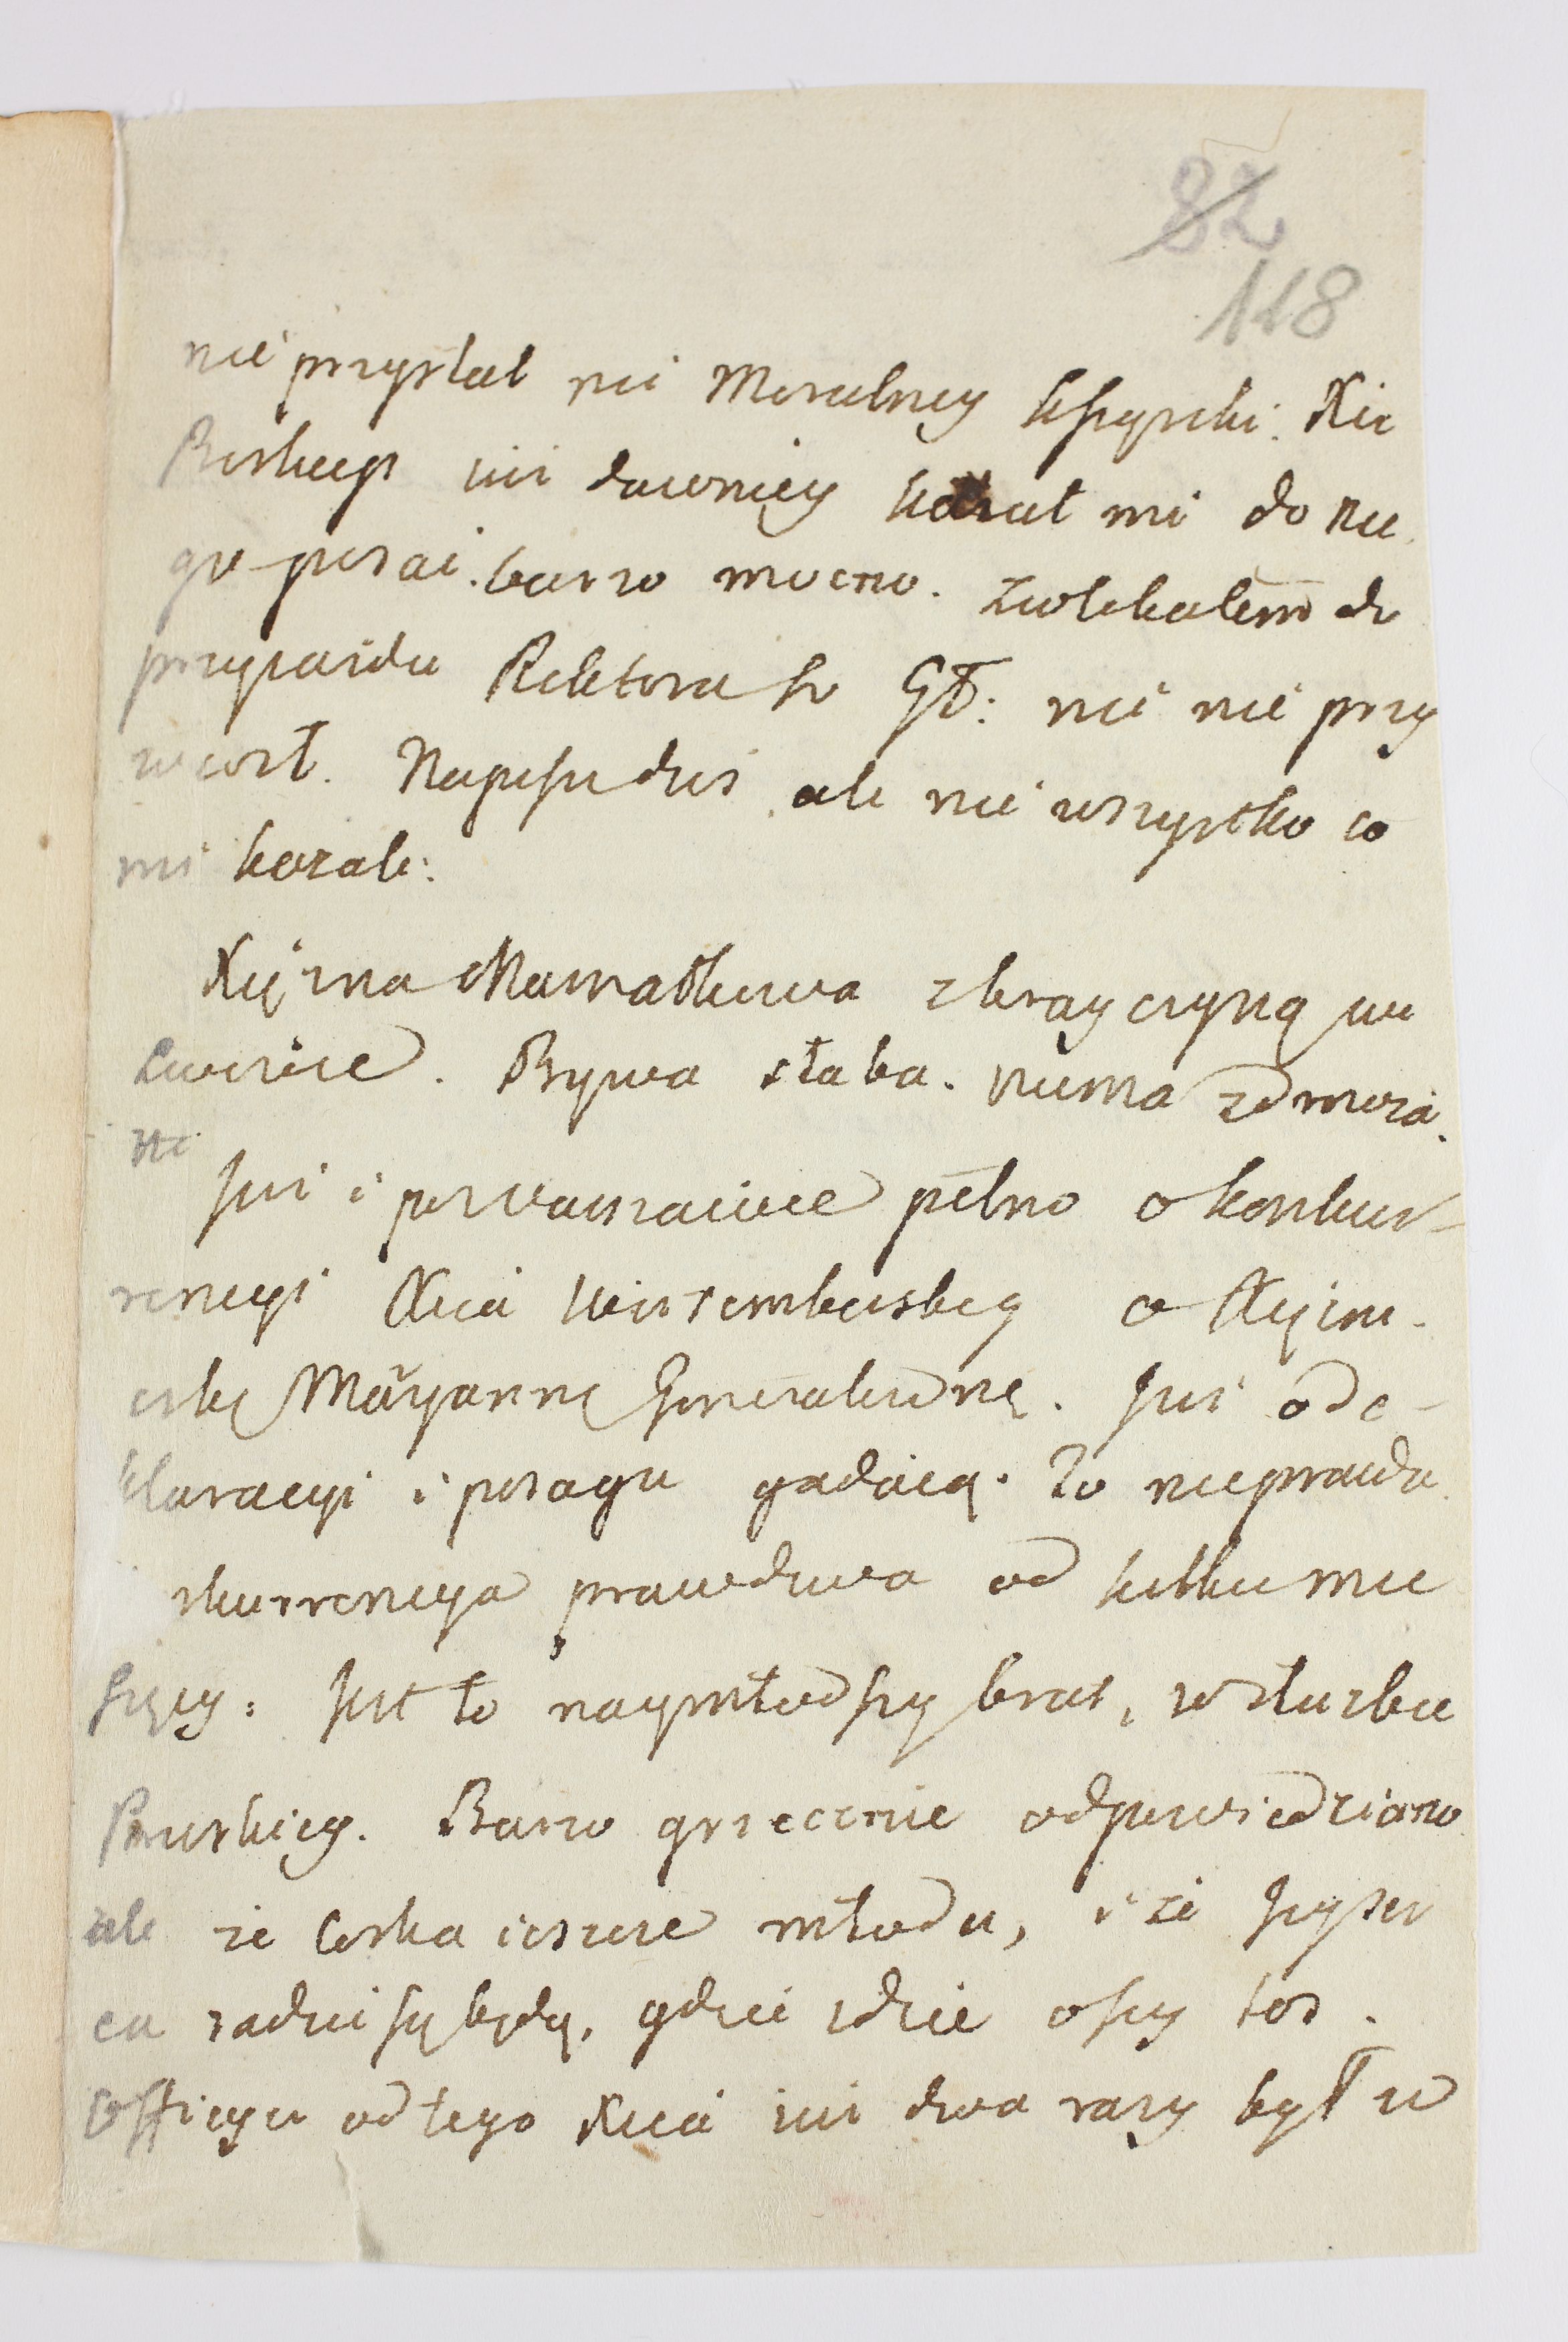 82
118
nie przysłał ni Moralney Xiązęczki. Xie
Biskup iuż dawniey kazał mi do nie
go pisać barzo mocno. Zwlekałem do
przyiazdu Rektora Gł: nic nie przy
wiozł. Napiszę dziś ale nie wszystko co
mi kazali:
Xiężna Marszałkowa z kray czyną we
Lwowie. Bywa słaba. Niema zdmoza.
Juz i po Warszawie pełno o konkur-
rencyi Xcia Wirtemberskieg o Xięzni-
czkę Maryannę Generałównę. Już o de-
klaracyi i posagu gadaią. To nieprawda
nkurrencya prawdziwa od kilku mie
sięcy: Jest to naymłodszy brat, w słuzbie
Pruskiey. Barzo grzecznie odpowiedziano
ale że Corka ieszcze młoda, i że
ca radzi się będą, gdzie idzie o Jey los.
Officyer od tego Xcia iuż dwa razy był w